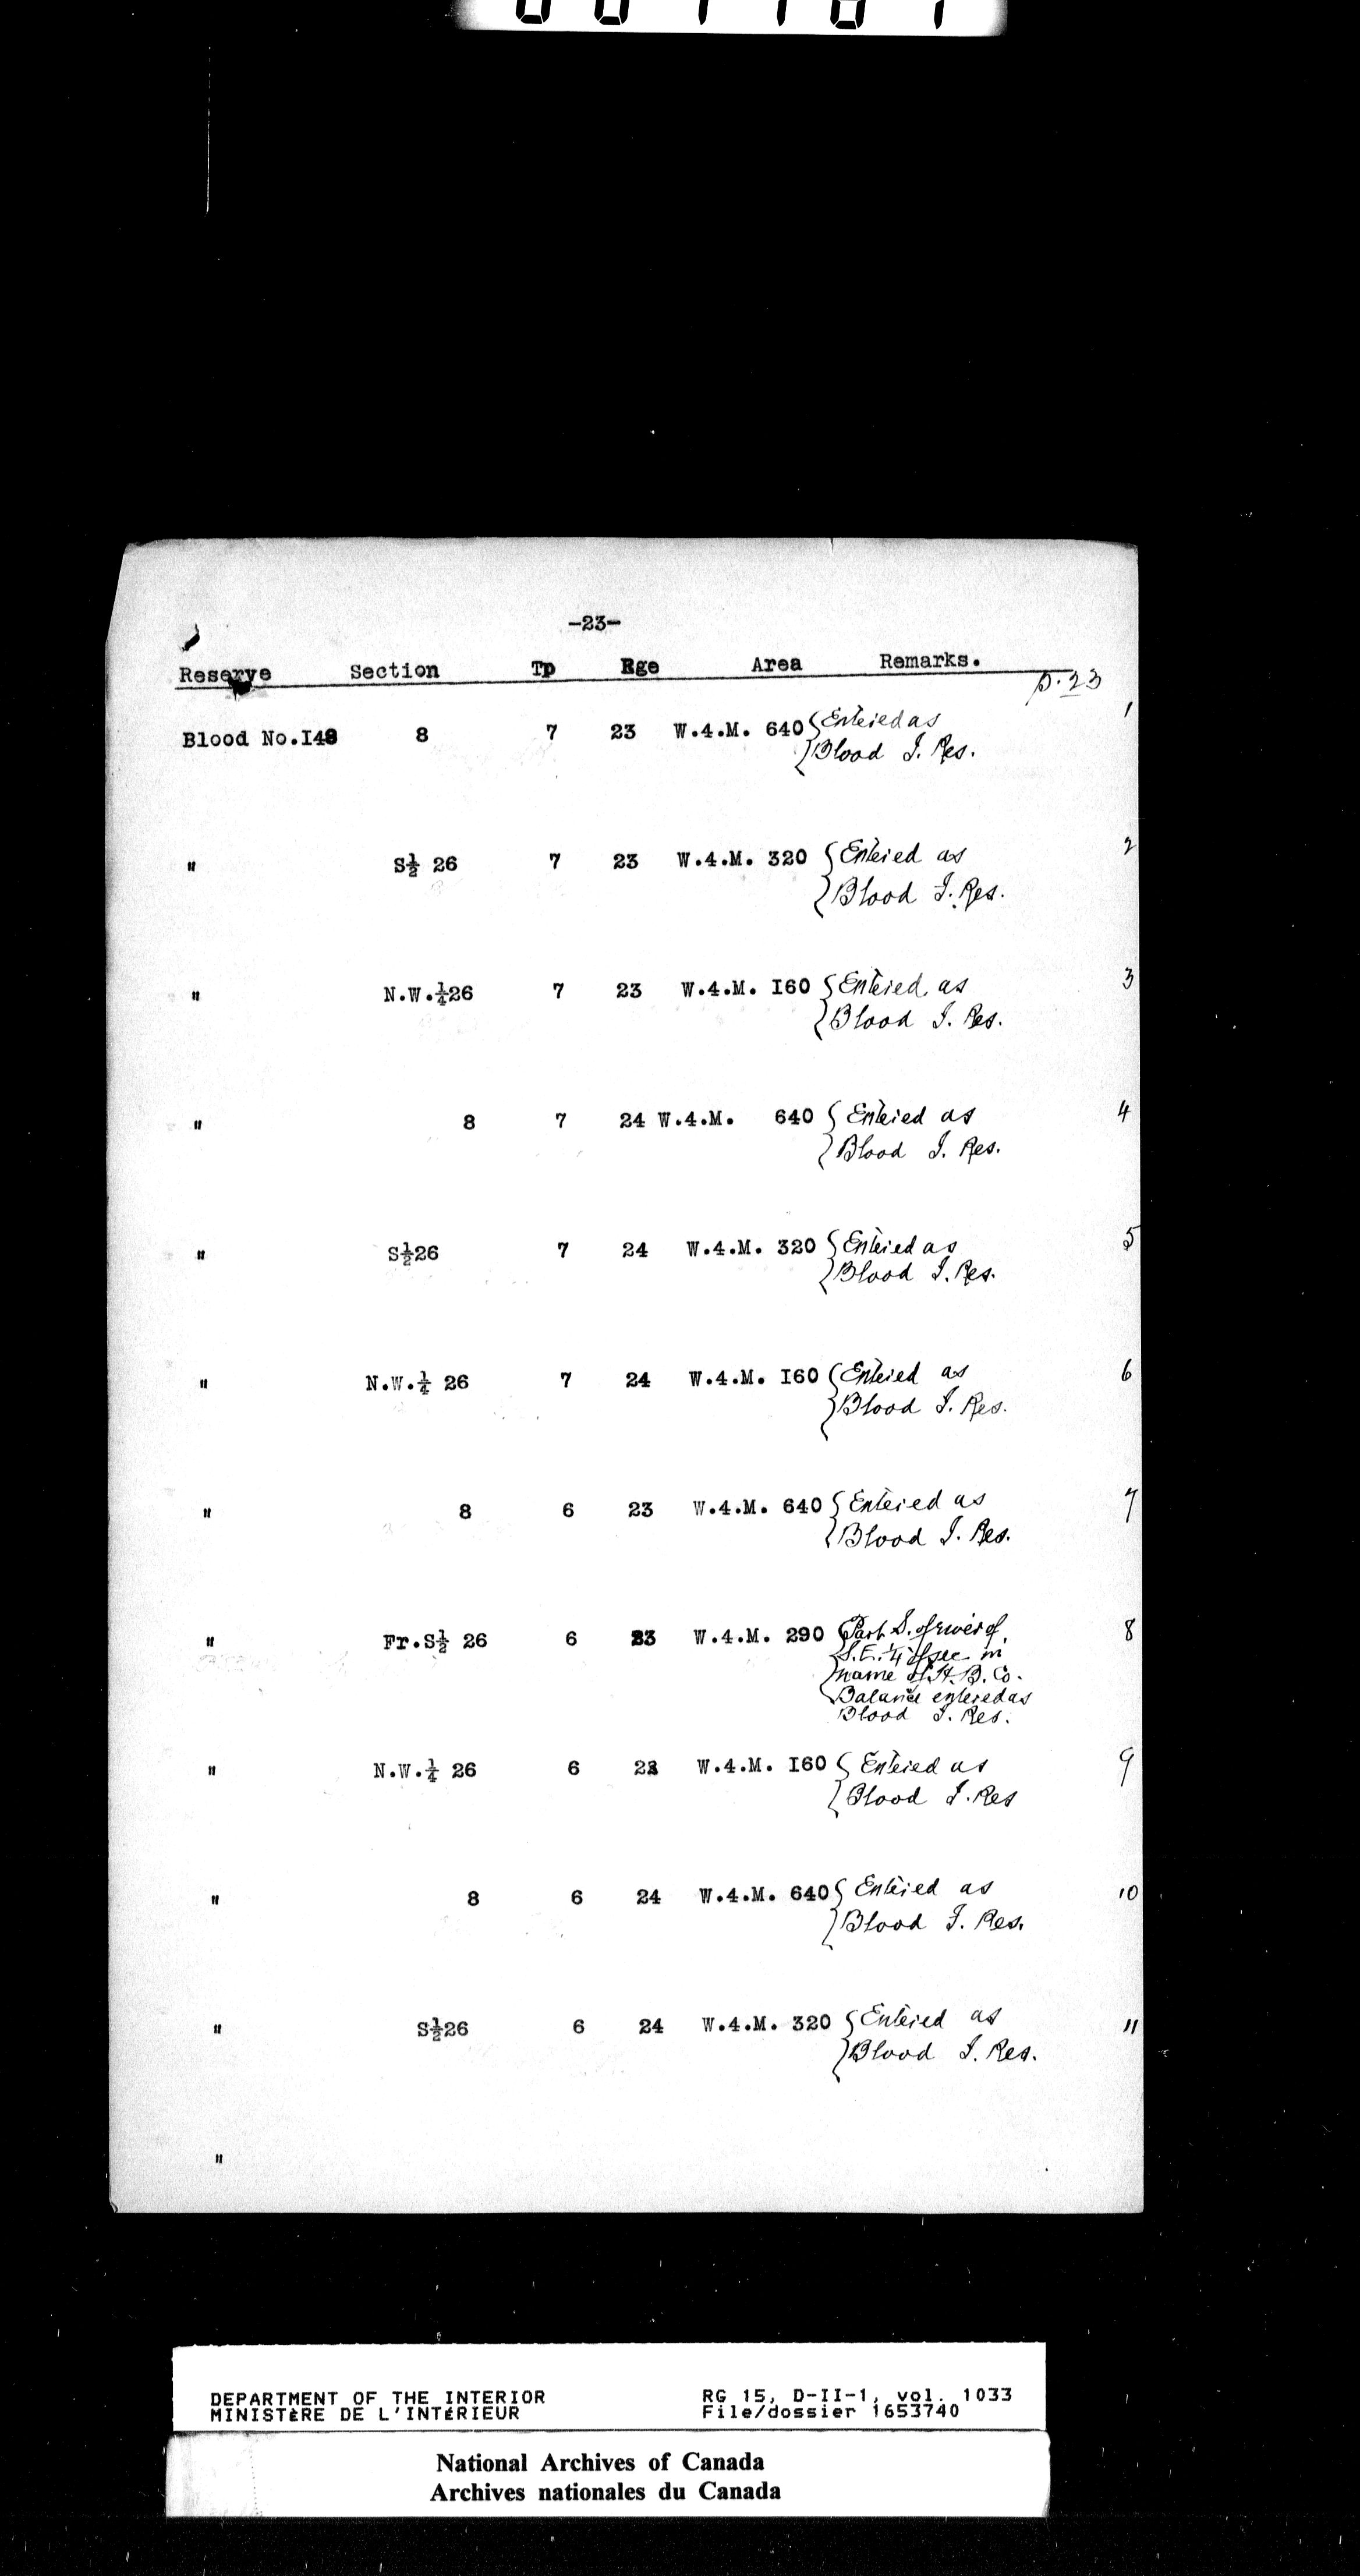 -23-
Reserve Section Tp Rge Area Remarks.
p. 23
Blood No.I48 8 7 23 W.4.M. 640 Entered as 1
Blood I. Res.
" S½ 26 7 23 W.4.M. 320 Entered as 2
Blood I. Res.
" N.W.¼26 7 23 W.4.M. I60 Entered as 3
Blood I. Res.
" 8 7 24 W.4.M. 640 Entered as 4
Blood I. Res.
" S½26 7 24 W.4.M. 320 Entered as 5
Blood I. Res.
" N.W.¼ 26 7 24 W.4.M. I60 Entered as 6
Blood I. Res.
" 8 6 23 W.4.M. 640 Entered as 7
Blood I. Res.
" Fr.S½ 26 6 23 W.4.M. 290 Part S. of river of 8
S.E. ¼ of sec in
name of H. B. Co.
Balance entered as
Blood I. Res.
" N.W.¼ 26 6 23 W.4.M. I60 Entered as 9
Blood I. Res
" 8 6 24 W.4.M. 640 Entered as 10
Blood I. Res.
" S½26 6 24 W.4.M. 320 Entered as 11
Blood I. Res.
"
DEPARTMENT OF THE INTERIOR RG 15, D-II-1, vol. 1033
MINISTÈRE DE L'INTÉRIEUR File/dossier 1653740
National Archives of Canada
Archives nationales du Canada